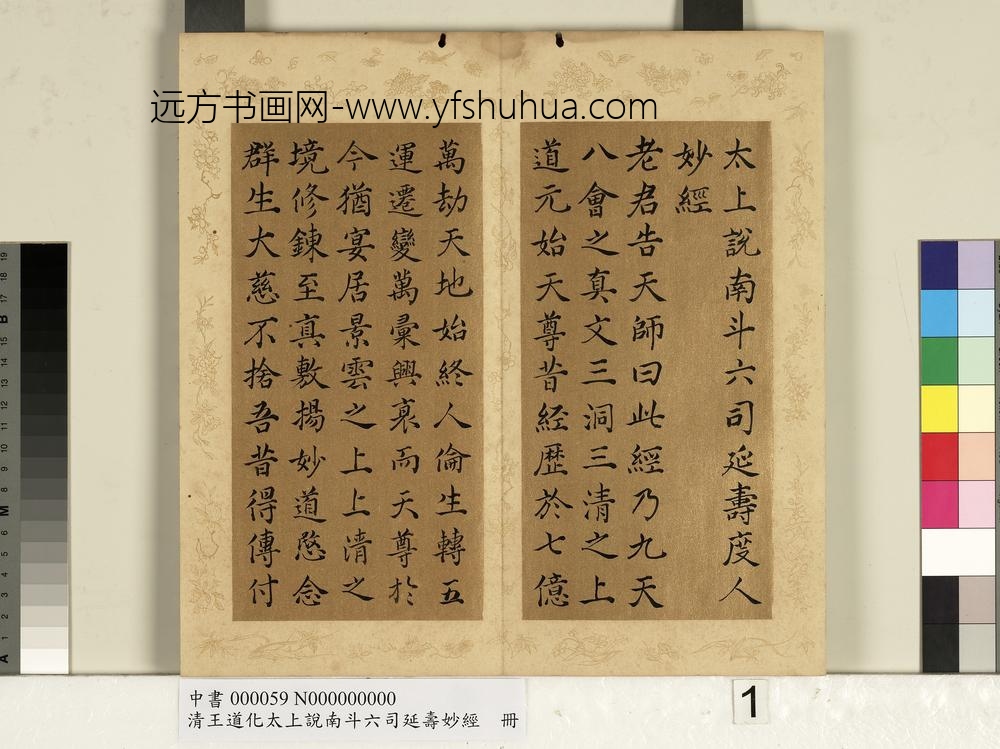 远方书画网-www.yfshuhua.com
太上說南斗六司延壽度人
妙經
老君告天師曰此經乃九天
八會之真文三洞三清之上
道元始天尊昔經歷於七億
萬劫天地始終人倫生轉五
運遷變萬彙興衰而天尊於
今猶宴居景雲之上上清之
境修鍊至真敷揚妙道愍念
群生大慈不捨吾昔得傳付
中書 000059 N000000000
清王道化太上說南斗六司延壽妙經 冊
1